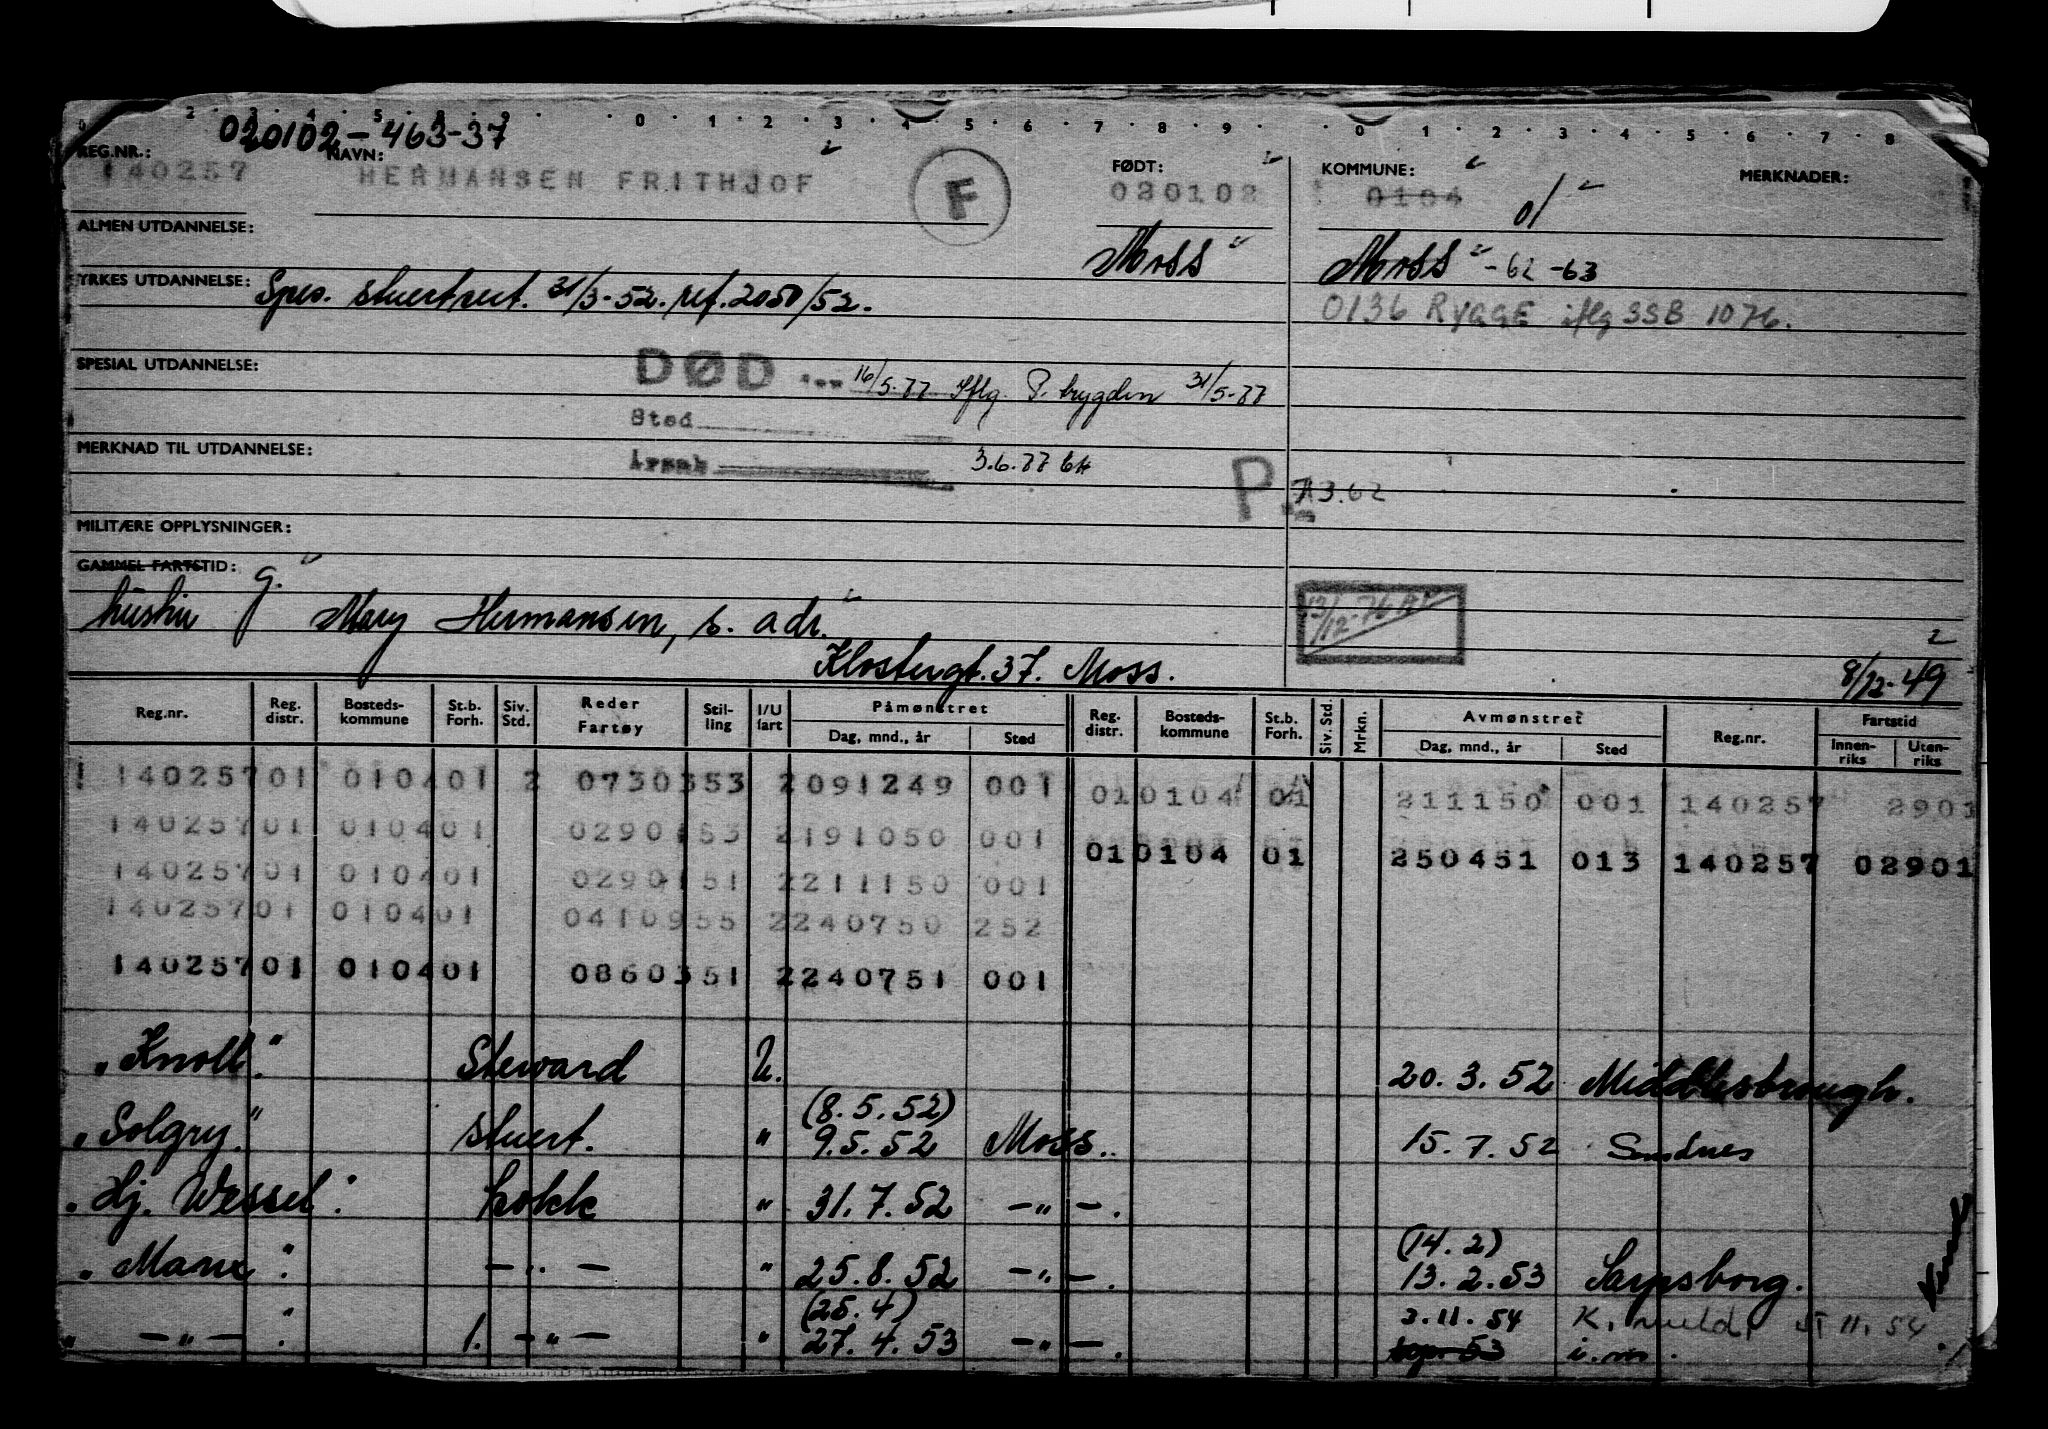 0 2 3 4 5 8 9 0 1 2 3 4 5 6 7 8 9 0 1 2 3 4 5 6 7 8
020102-463-37
REG.NR.: NAVN: FØDT: KOMMUNE: MERKNADER:
140257 HERMANSEN FRITHJOF F 020102 0104 01
ALMEN UTDANNELSE: Moss Moss -62 -63
YRKES UTDANNELSE: Spes. stuertsert. 31/3-52. ref. 2050/52.
0136 RYGGE iflg SSB 1076.
SPESIAL UTDANNELSE: DØD 16/5-77 Iflg. P. trygden 31/5-77
Sted
MERKNAD TIL UTDANNELSE: Årsak 3.6.77 P. 3.62
MILITÆRE OPPLYSNINGER:
GAMMEL FARTSTID: 13/12-76
hustru G. Mary Hermansen, s. adr.
Klostergt. 37. Moss. 8/12-49
Reg.nr. Reg. distr. Bosteds-kommune St.b. Forh. Siv. Std. Reder Fartøy Stil-ling I/U fart Påmønstret Dag, mnd., år Sted Reg. distr. Bosteds-kommune St.b. Forh. Siv. Std. Mrkn. Avmønstret Dag, mnd., år Sted Reg.nr. Fartstid Innen-riks Uten-riks
140257 01 0104 01 2 0730353 2 091249 001 01 0104 01 211150 001 140257 2901
140257 01 0104 01 0290153 2 191050 001 01 0104 01 250451 013 140257 02901
140257 01 0104 01 0290151 2 211150 001
140257 01 0104 01 0410955 2 240750 252
140257 01 0104 01 0860351 2 240751 001
"Knoll." Steward U. 20.3.52 Middlesbrough.
(8.5.52)
"Solgry." stuert. " 9.5.52 Moss. 15.7.52 Sandnes
"Hj. Wessel". kokk " 31.7.52 -"-.
(14.2)
"Manx". -"- " 25.8.52 -"-. 13.2.53 Sarpsborg.
(25.4) 3.11.54 K. 11.54
" -"- ". 1. -"- " 27.4.53 -"-. 53 i.m.